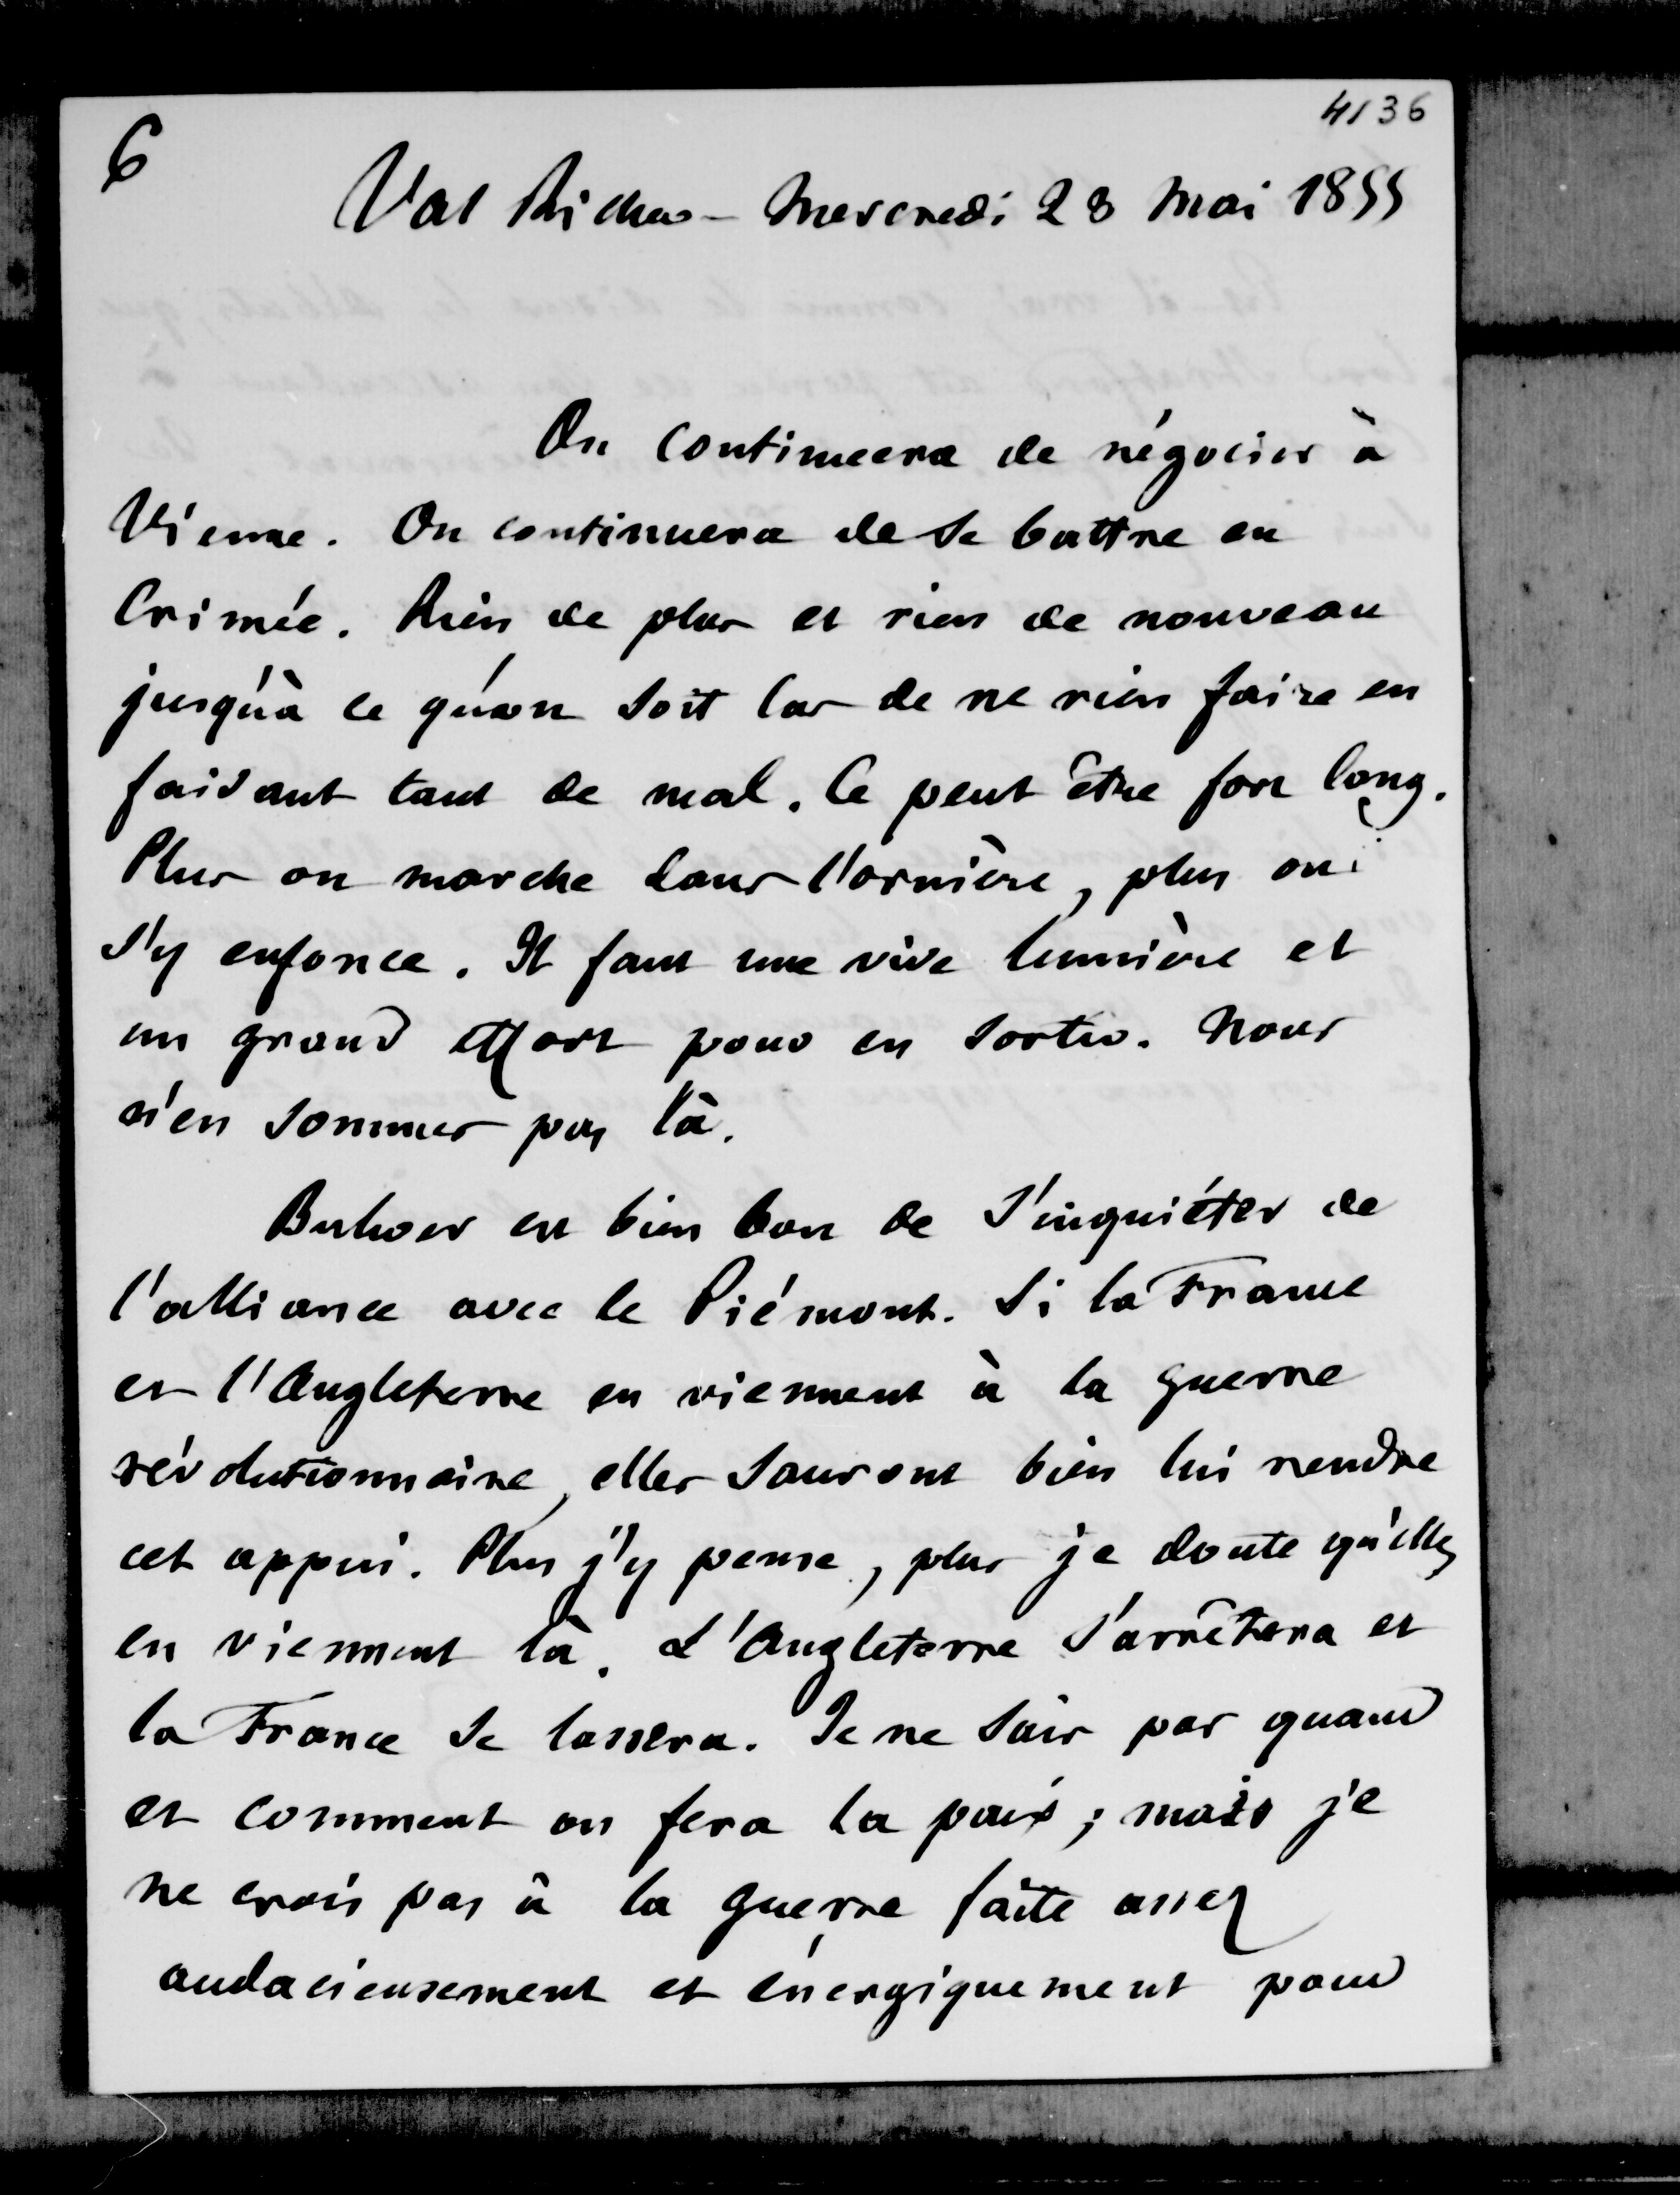 4136
6
Val Richer - Mercredi 23 Mai 1855
On continuera de négocier à
Vienne. On continuera de se battre en
Crimée. Rien de plus et rien de nouveau
jusqu'à ce qu'on soit las de ne rien faire en
faisant tant de mal. Ce peut être fort long.
Plus on marche dans l'ornière, plus on
s'y enfonce. Il faut une vive lumière et
un grand effort pour en sortir. Nous
n'en sommes pas là.
Bulwer est bien bon de s'inquiéter de
l'alliance avec le Piémont. Si la France
et l'Angleterre en viennent à la guerre
révolutionnaire, elles sauront bien lui rendre
cet appui. Plus j'y pense, plus je doute qu'elles
en viennent là. L'Angleterre s'arrêtera et
la France se lassera. Je ne sais pas quand
et comment on fera la paix ; mais je
ne crois pas à la guerre faite assez
audacieusement et énergiquement pour